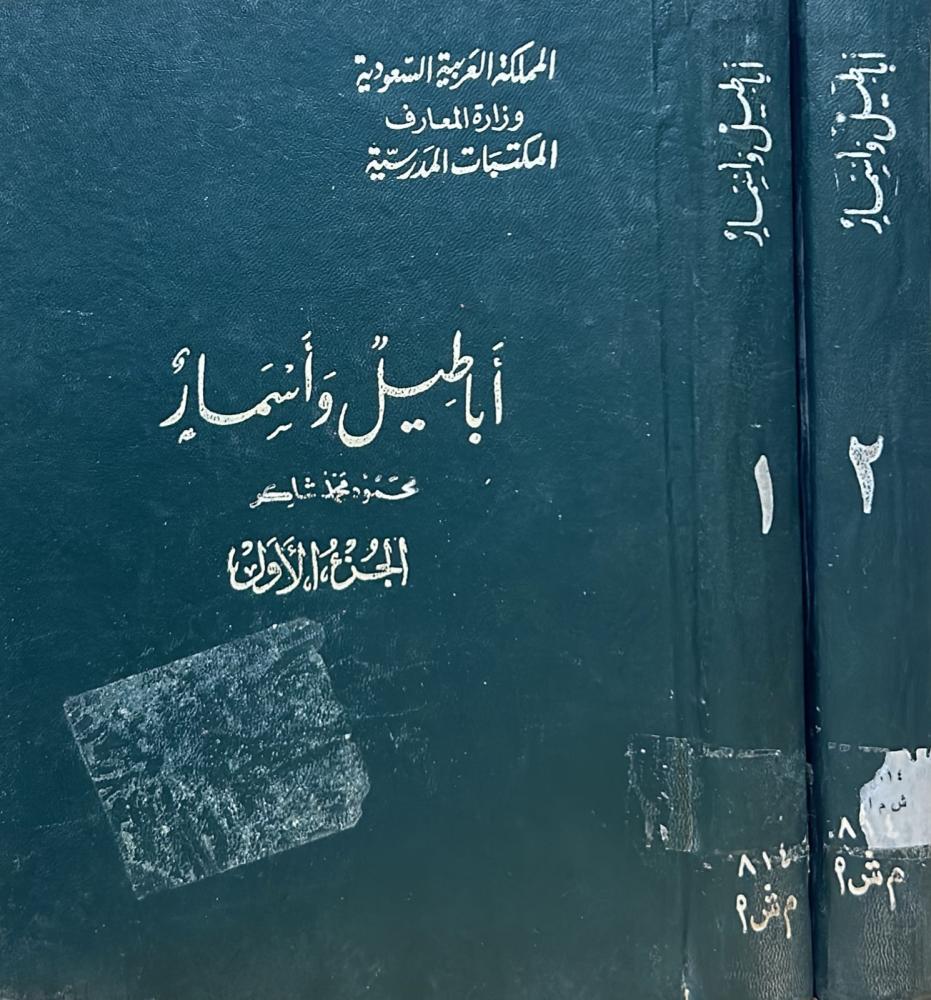 المملكة العربية السعودية
وزارة المعارف
المكتبات المدرسية
أَبَاطِيلٌ وَأَسْمَارٌ
محمود محمد شاكر
الجُزءُ الأَوَل
أباطيلٌ وَأَسْمَارٌ
١
٨١٤
م ش أ
أباطيلٌ وَأَسْمَارٌ
٢
ش م ا
٨١٤
م ش أ